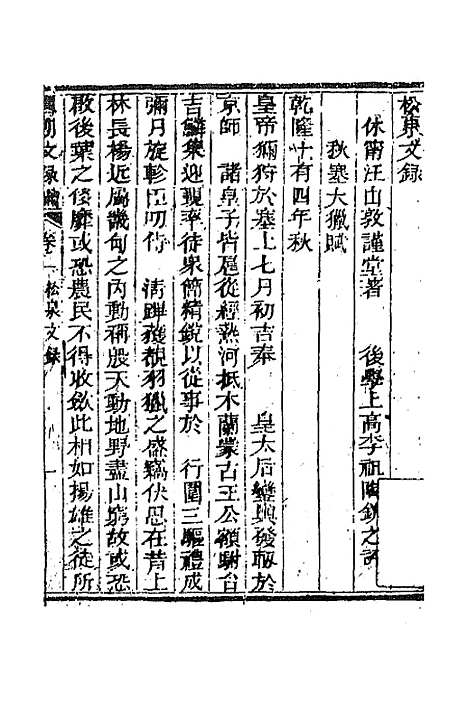 松泉文録
休甯汪由敦謹堂著　後學上高李祖陶欽之評
秋塞大獵賦
乾隆十有四年秋
皇帝獮狩於塞上七月初吉奉　皇太后鑾輿發軔於
京師　諸皇子皆扈從經熱河抵木蘭蒙古王公額駙台
吉麟集迎覲率徒衆簡精銳以從事於　行圍三驅禮成
彌月旋軫臣叨侍　清蹕獲覩羽獵之盛竊伏思在昔上
林長楊近屬畿甸之內動稱殷天動地野盡山窮故或恐
啟後葉之侈靡或恐農民不得收斂此相如揚雄之徒所
國朝文録續　卷一　松泉文録